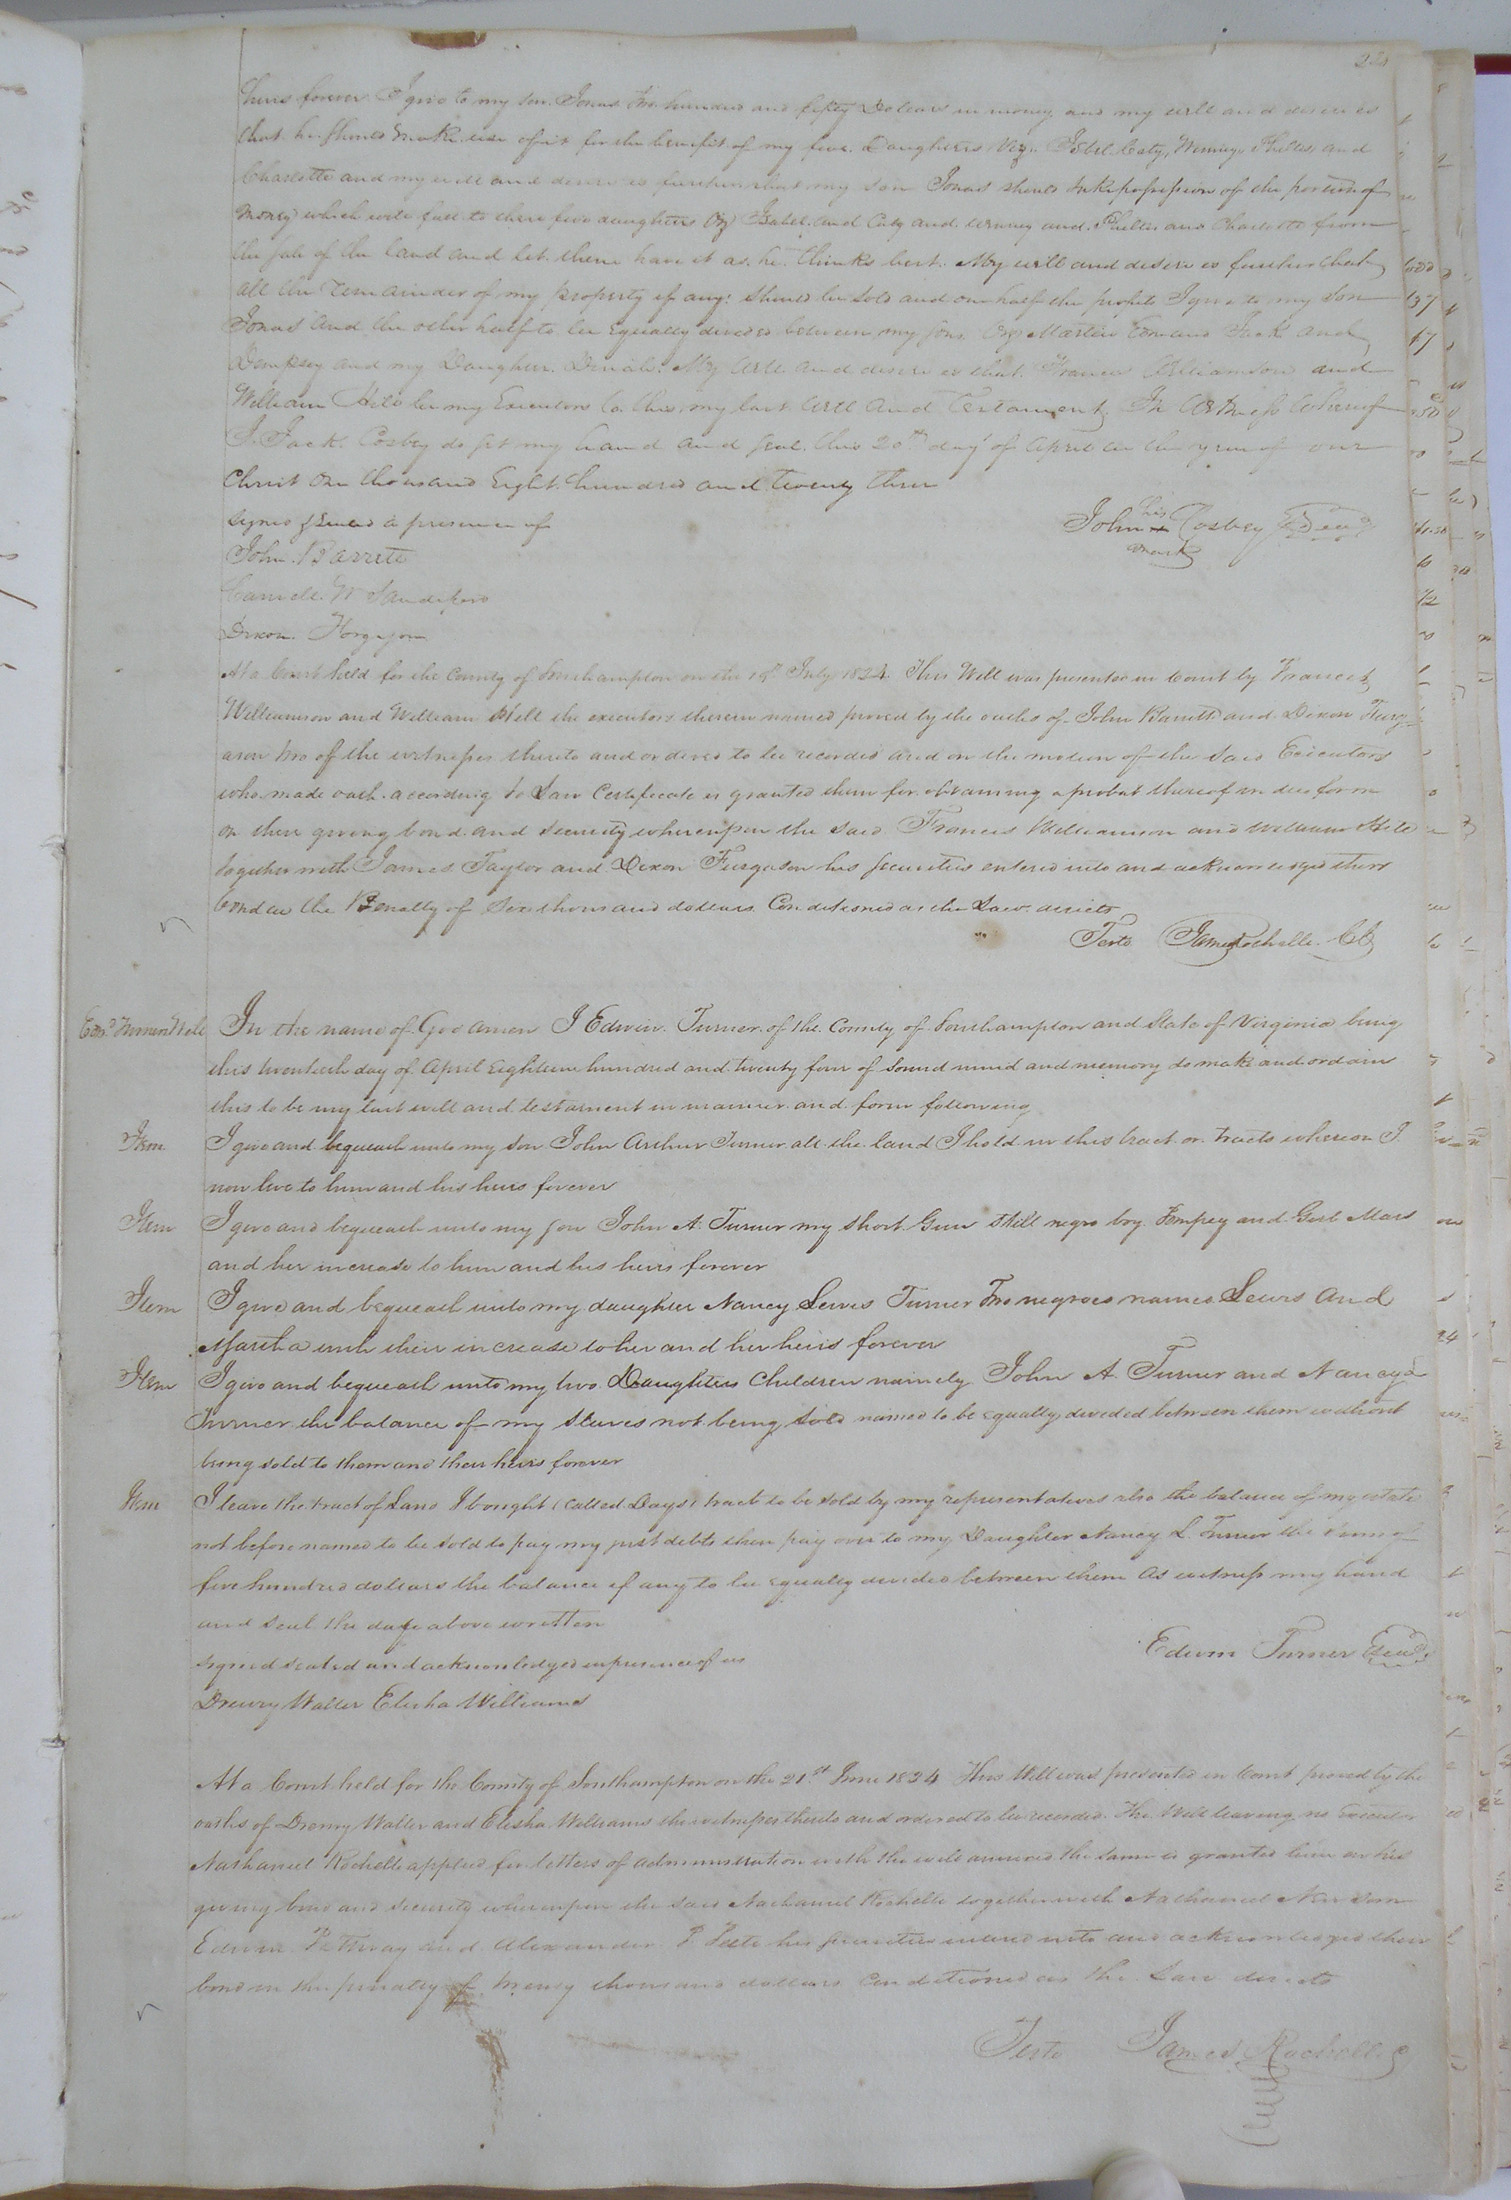 heirs forever I give to my son Jonas two hundred and fifty Dollars in money and my will and desire is
that he should make use of it for the benefit of my five Daughters Viz. Isbel Caty, Winney Phillis and
Charlotte and my will and desire is further that my son Jonas should take possession of the portion of
money which will fall to these five daughters Viz Isabel and Caty and Winney and Phillis and Charlotte from
the sale of the land and let them have it as he thinks best. My will and desire is further that
all the remainder of my property if any: should be sold and one half the profits I give to my son
Jonas and the other half to be Equally divided between my sons Viz Martin Tom and Jack and
Dempsey and my Daughter Dinah. My will and desire is that Francis Williamson and
William Hill be my Executors to this my last will and Testament. In Witness whereof
I Jack Cosbey do set my hand and seal this 20th day of April in the year of our
Christ One thousand Eight hundred and twenty three
Signed Sealed in presence of
John his Cosbey Seal
mark
John Barrett
W Sandifer
Dixon
At a Court held for the County of Southampton on the 19th July 1824 This Will was presented in Court by Francis
Williamson and William Hill the executors therein named proved by the oaths of John Barrett and Dixon Furg-
ason two of the witnesses thereto and ordered to be recorded and on the motion of the said Executors
who made oath according to Law Certificate is granted them for obtaining a probat thereof in due form
on their giving bond and security whereupon the said Francis Williamson and William Hill
together with James Taylor and Dixon Furgason his Securities entered into and acknowledged their
bond in the Penalty of Six thousand dollars Conditioned as the Law directs
Teste James Rochelle Clk
Edwd. Turners Will
In the name of God amen I Edwin Turner of the County of Southampton and State of Virginia being
this twentieth day of April Eighteen hundred and twenty four of sound mind and memory do make and ordain
this to be my last will and testament in manner and form following
Item I give and bequeath unto my son John Arthur Turner all the land I hold in this tract or tracts whereon I
now live to him and his heirs forever
Item I give and bequeath unto my son John A. Turner my short Gun Still negro boy Dempsey and Girl Mars
and her increase to him and his heirs forever
Item I give and bequeath unto my daughter Nancy Lewis Turner Two negroes names Lewis and
Martha with their increase to her and her heirs forever
Item I give and bequeath unto my two Daughters Children namely John A. Turner and Nancy L
Turner the balance of my Slaves not being sold named to be equally divided between them without
being sold to them and their heirs forever
Item I leave the tract of Land I bought (called Days) tract to be sold by my representatives also the balance of my estate
not before named to be sold to pay my just debts then pay over to my Daughter Nancy L. Turner the sum of
five hundred dollars the balance if any to be equally divided between them As witness my hand
and seal the day above written
Signed sealed and acknowledged in presence of us
Edwin Turner Seal
Drewry Waller Elisha Williams
At a Court held for the County of Southampton on the 21st June 1824 This Will was presented in Court proved by the
oaths of Drewry Waller and Elisha Williams the witnesses thereto and ordered to be recorded. The Will leaving no Executor
Nathaniel Rochelle applied for letters of administration with the will annexed the same is granted him on his
giving bond and security whereupon the said Nathaniel Rochelle together with Nathaniel Newsom
Edwin Pethway and Alexander P Peete his Securities entered into and acknowledged their
bond in the penalty of twenty thousand dollars Conditioned as the Law directs
Teste James Rochelle C